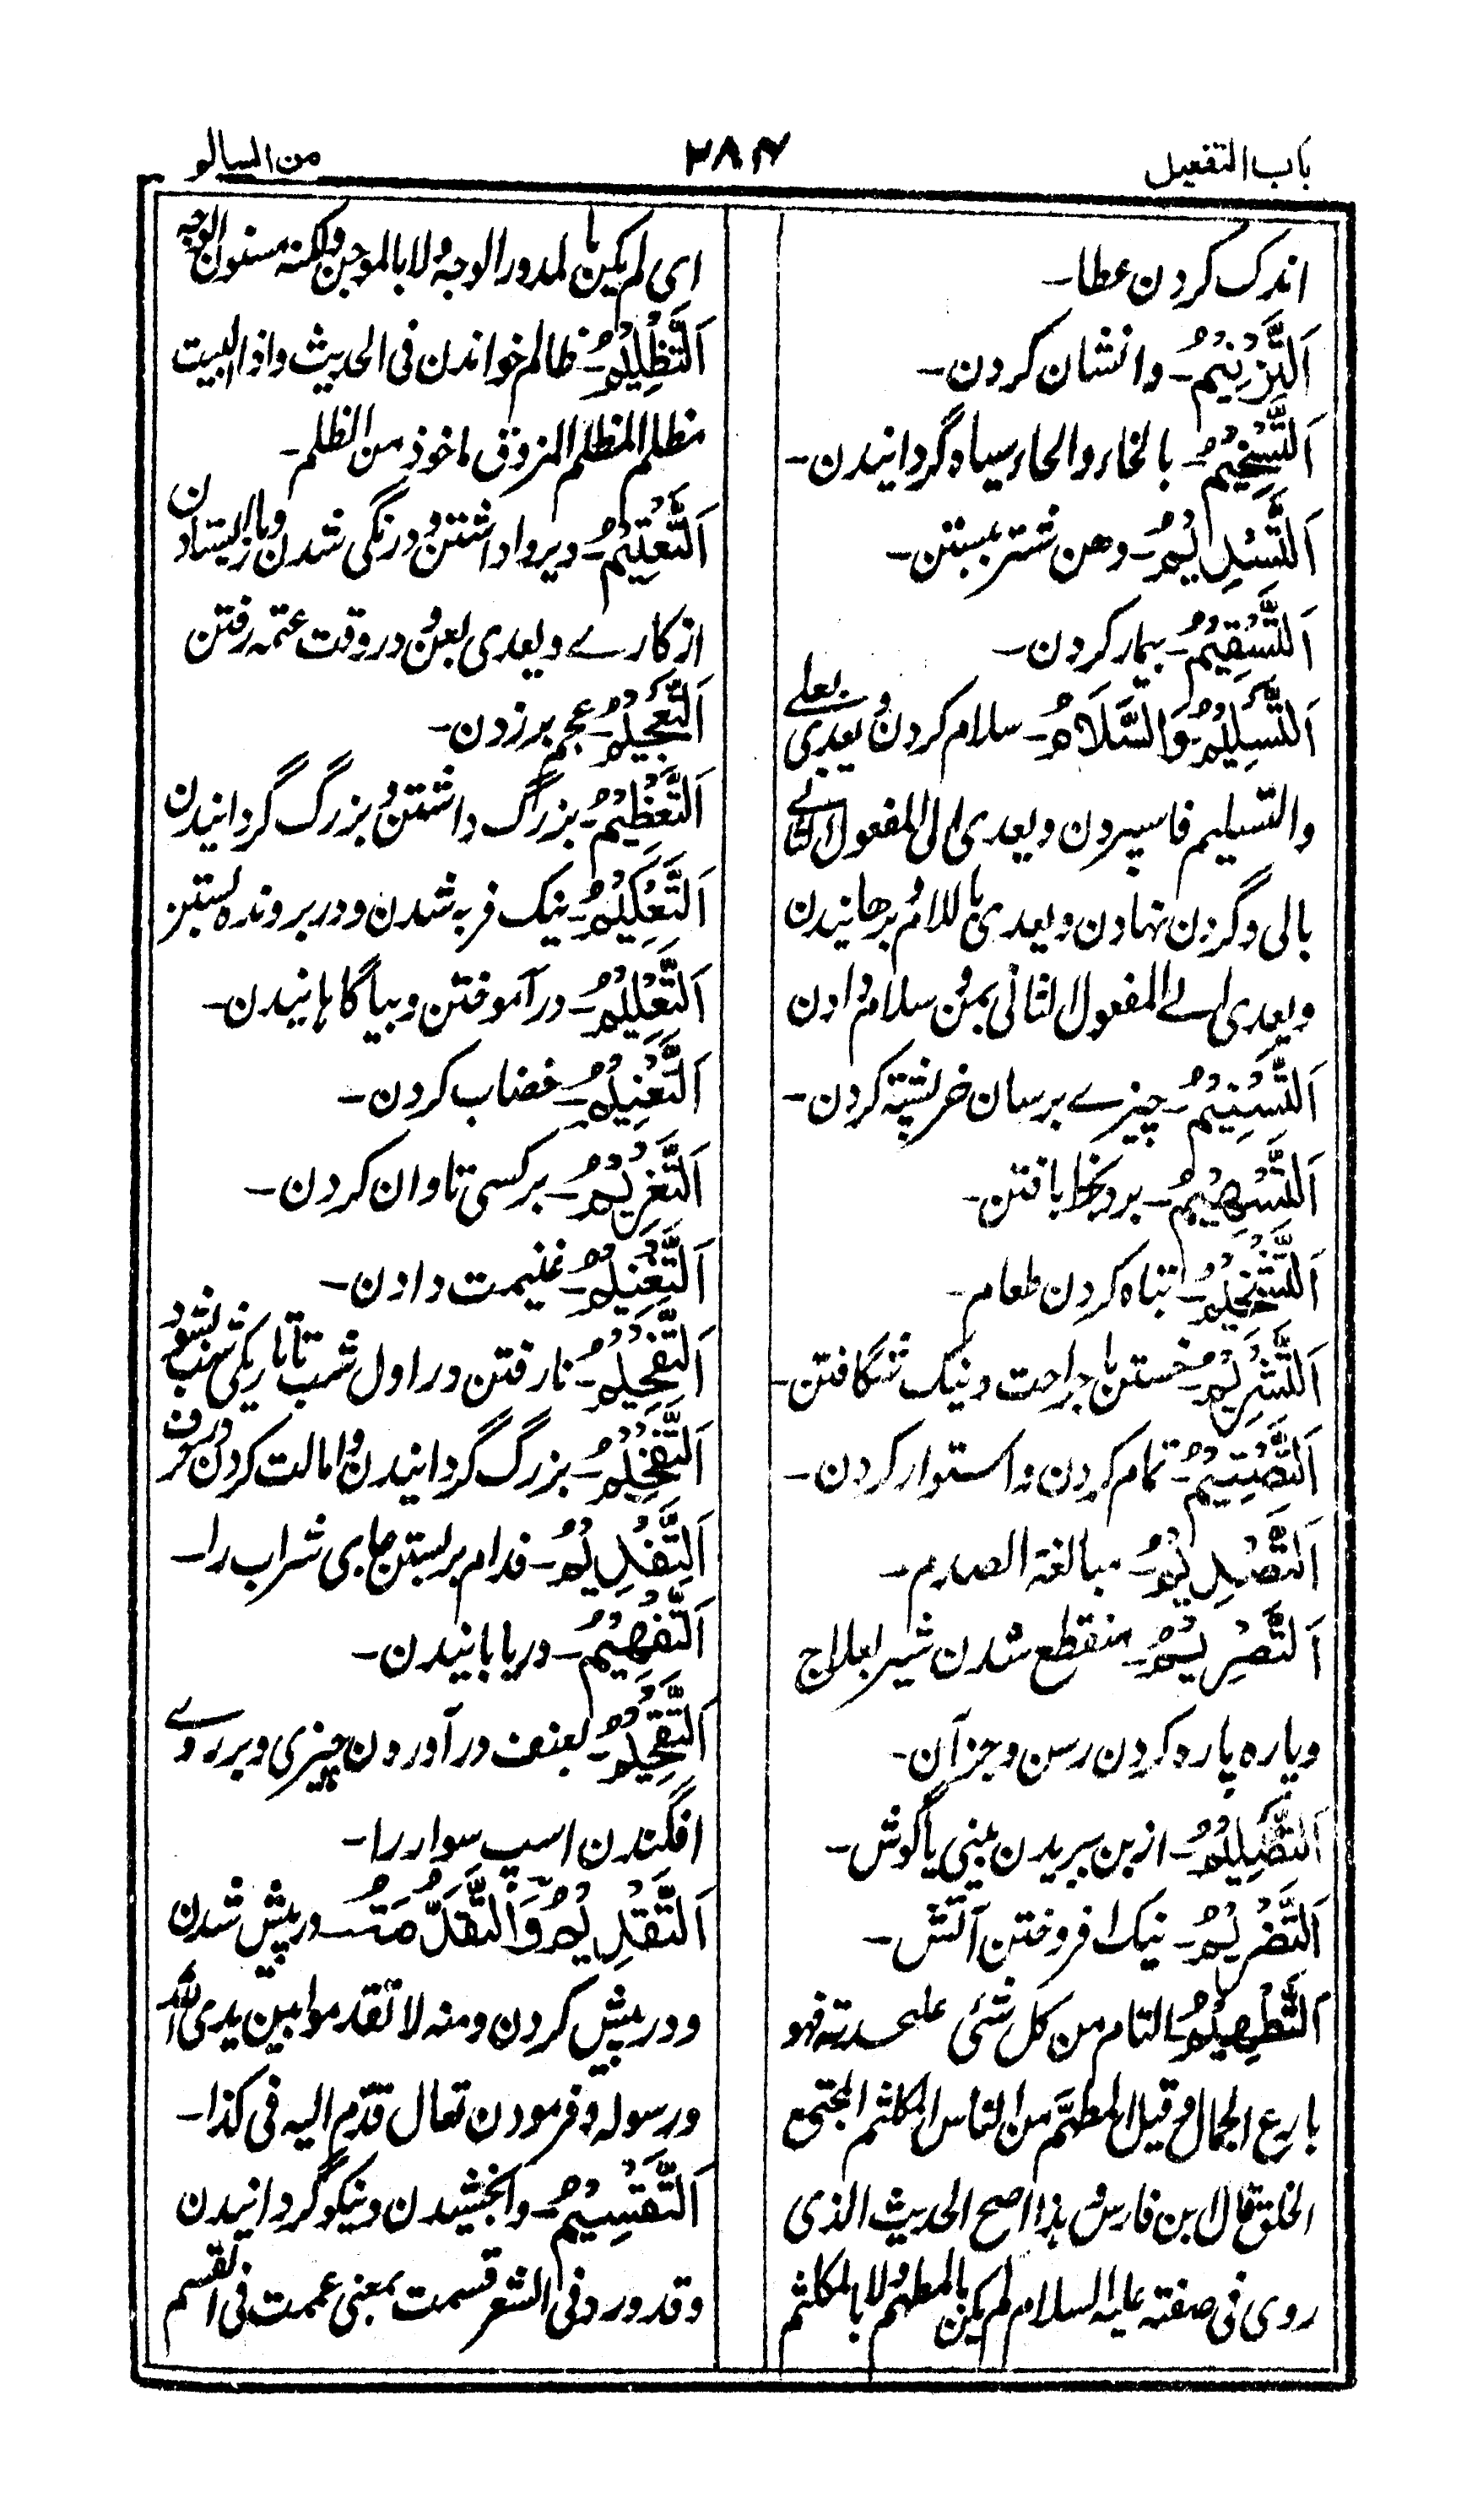 باب التفعیل
۲۸۴
من السالو
اندک کردن عطا۔
اَلتَّزْنِیْمُ۔ وانشان کردن۔
اَلتَّسْخِیْمُ۔ بالخاء والحاء سیاه گردانیدن۔
اَلتَّسْدِیْمُ۔ دهن شتر ببستن۔
اَلتَّسْقِیْمُ۔ بیمار کردن۔
اَلتَّسْلِیْمُ وَالسَّلَامُ۔ سلام کردن ویعدی بعلی
والتسلیم فاسپردن ویعدی الی المفعول الثانے
بالی وگردن نهادن ویعدی باللام وبرهانیدن
ویعدی الے المفعول الثانی بمن وسلام دادن
اَلتَّسْنِیْمُ۔ چیزے برسان خرپشته کردن۔
اَلتَّسْهِیْمُ۔ برد بخط بافتن۔
اَلتَّشْخِیْمُ۔ تباه کردن طعام۔
اَلتَّشْرِیْمُ۔ خستن با جراحت ونیک شگافتن۔
اَلتَّصْتِیْمُ۔ تمام کردن واستوار کردن۔
اَلتَّصْدِیْمُ۔ مبالغة الصدم۔
اَلتَّصْرِیْمُ۔ منقطع شدن شیر بعلاج
وپاره پاره کردن رسن وجز آن۔
اَلتَّصْلِیْمُ۔ از بن ببریدن بینی یا گوش۔
اَلتَّضْرِیْمُ۔ نیک افروختن آتش۔
اَلتَّطْهِیْمُ۔ التام من کل شئی علیحدته فهو
بارع الجمال وقیل المطهَّم من الناس المکلثم المجتمع
الخلق قال ابن فارس وهذا اصح الحدیث الذی
روی فی صفته علیه السلام لم یکن بالمطهم ولا بالمکلثم
ای لم یکن بالمدور الوجه ولا بالموجن ولکنه مسنون الوجه
اَلتَّظْلِیْمُ۔ ظالم خواندن فی الحدیث واذا البیت
مظلم المظلم المزوق ماخوذ من الظلم۔
اَلتَّعْتِیْمُ۔ دیر واداشتن ودرنگی شدن وباز ایستادن
از کارے ویعدی بعن ودر وقت عتمه رفتن
اَلتَّعْجِیْمُ۔ عجم برزدن۔
اَلتَّعْظِیْمُ۔ بزرگ داشتن وبزرگ گردانیدن
اَلتَّعْکِیْمُ۔ نیک فربه شدن ودر برونده بستن
اَلتَّعْلِیْمُ۔ درآموختن وبیاگاهانیدن۔
اَلتَّعْنِیْمُ۔ خضاب کردن۔
اَلتَّغْرِیْمُ۔ بر کسی تاوان کردن۔
اَلتَّغْنِیْمُ۔ غنیمت دادن۔
اَلتَّفْحِیْمُ۔ نارفتن در اول شب تا تاریکی شب نشود
اَلتَّفْخِیْمُ۔ بزرگ گردانیدن وامالت کردن در حرف
اَلتَّفْدِیْمُ۔ فدام بربستن جای شراب را۔
اَلتَّفْهِیْمُ۔ دریابانیدن۔
اَلتَّقْحِیْمُ۔ بعنف درآوردن چیزی وبر روے
افگندن اسپ سوار را۔
اَلتَّقْدِیْمُ وَالتَّقْدِمَةُ۔ درپیش شدن
ودرپیش کردن ومنه لا تقدموا بین یدی الله
ورسوله وفرمودن تقال قدّم الیه فی کذا۔
اَلتَّقْسِیْمُ۔ وابخشیدن ونیکو گردانیدن
وقد ورد فی الشعر قسمت بمعنی عممت فی القسم